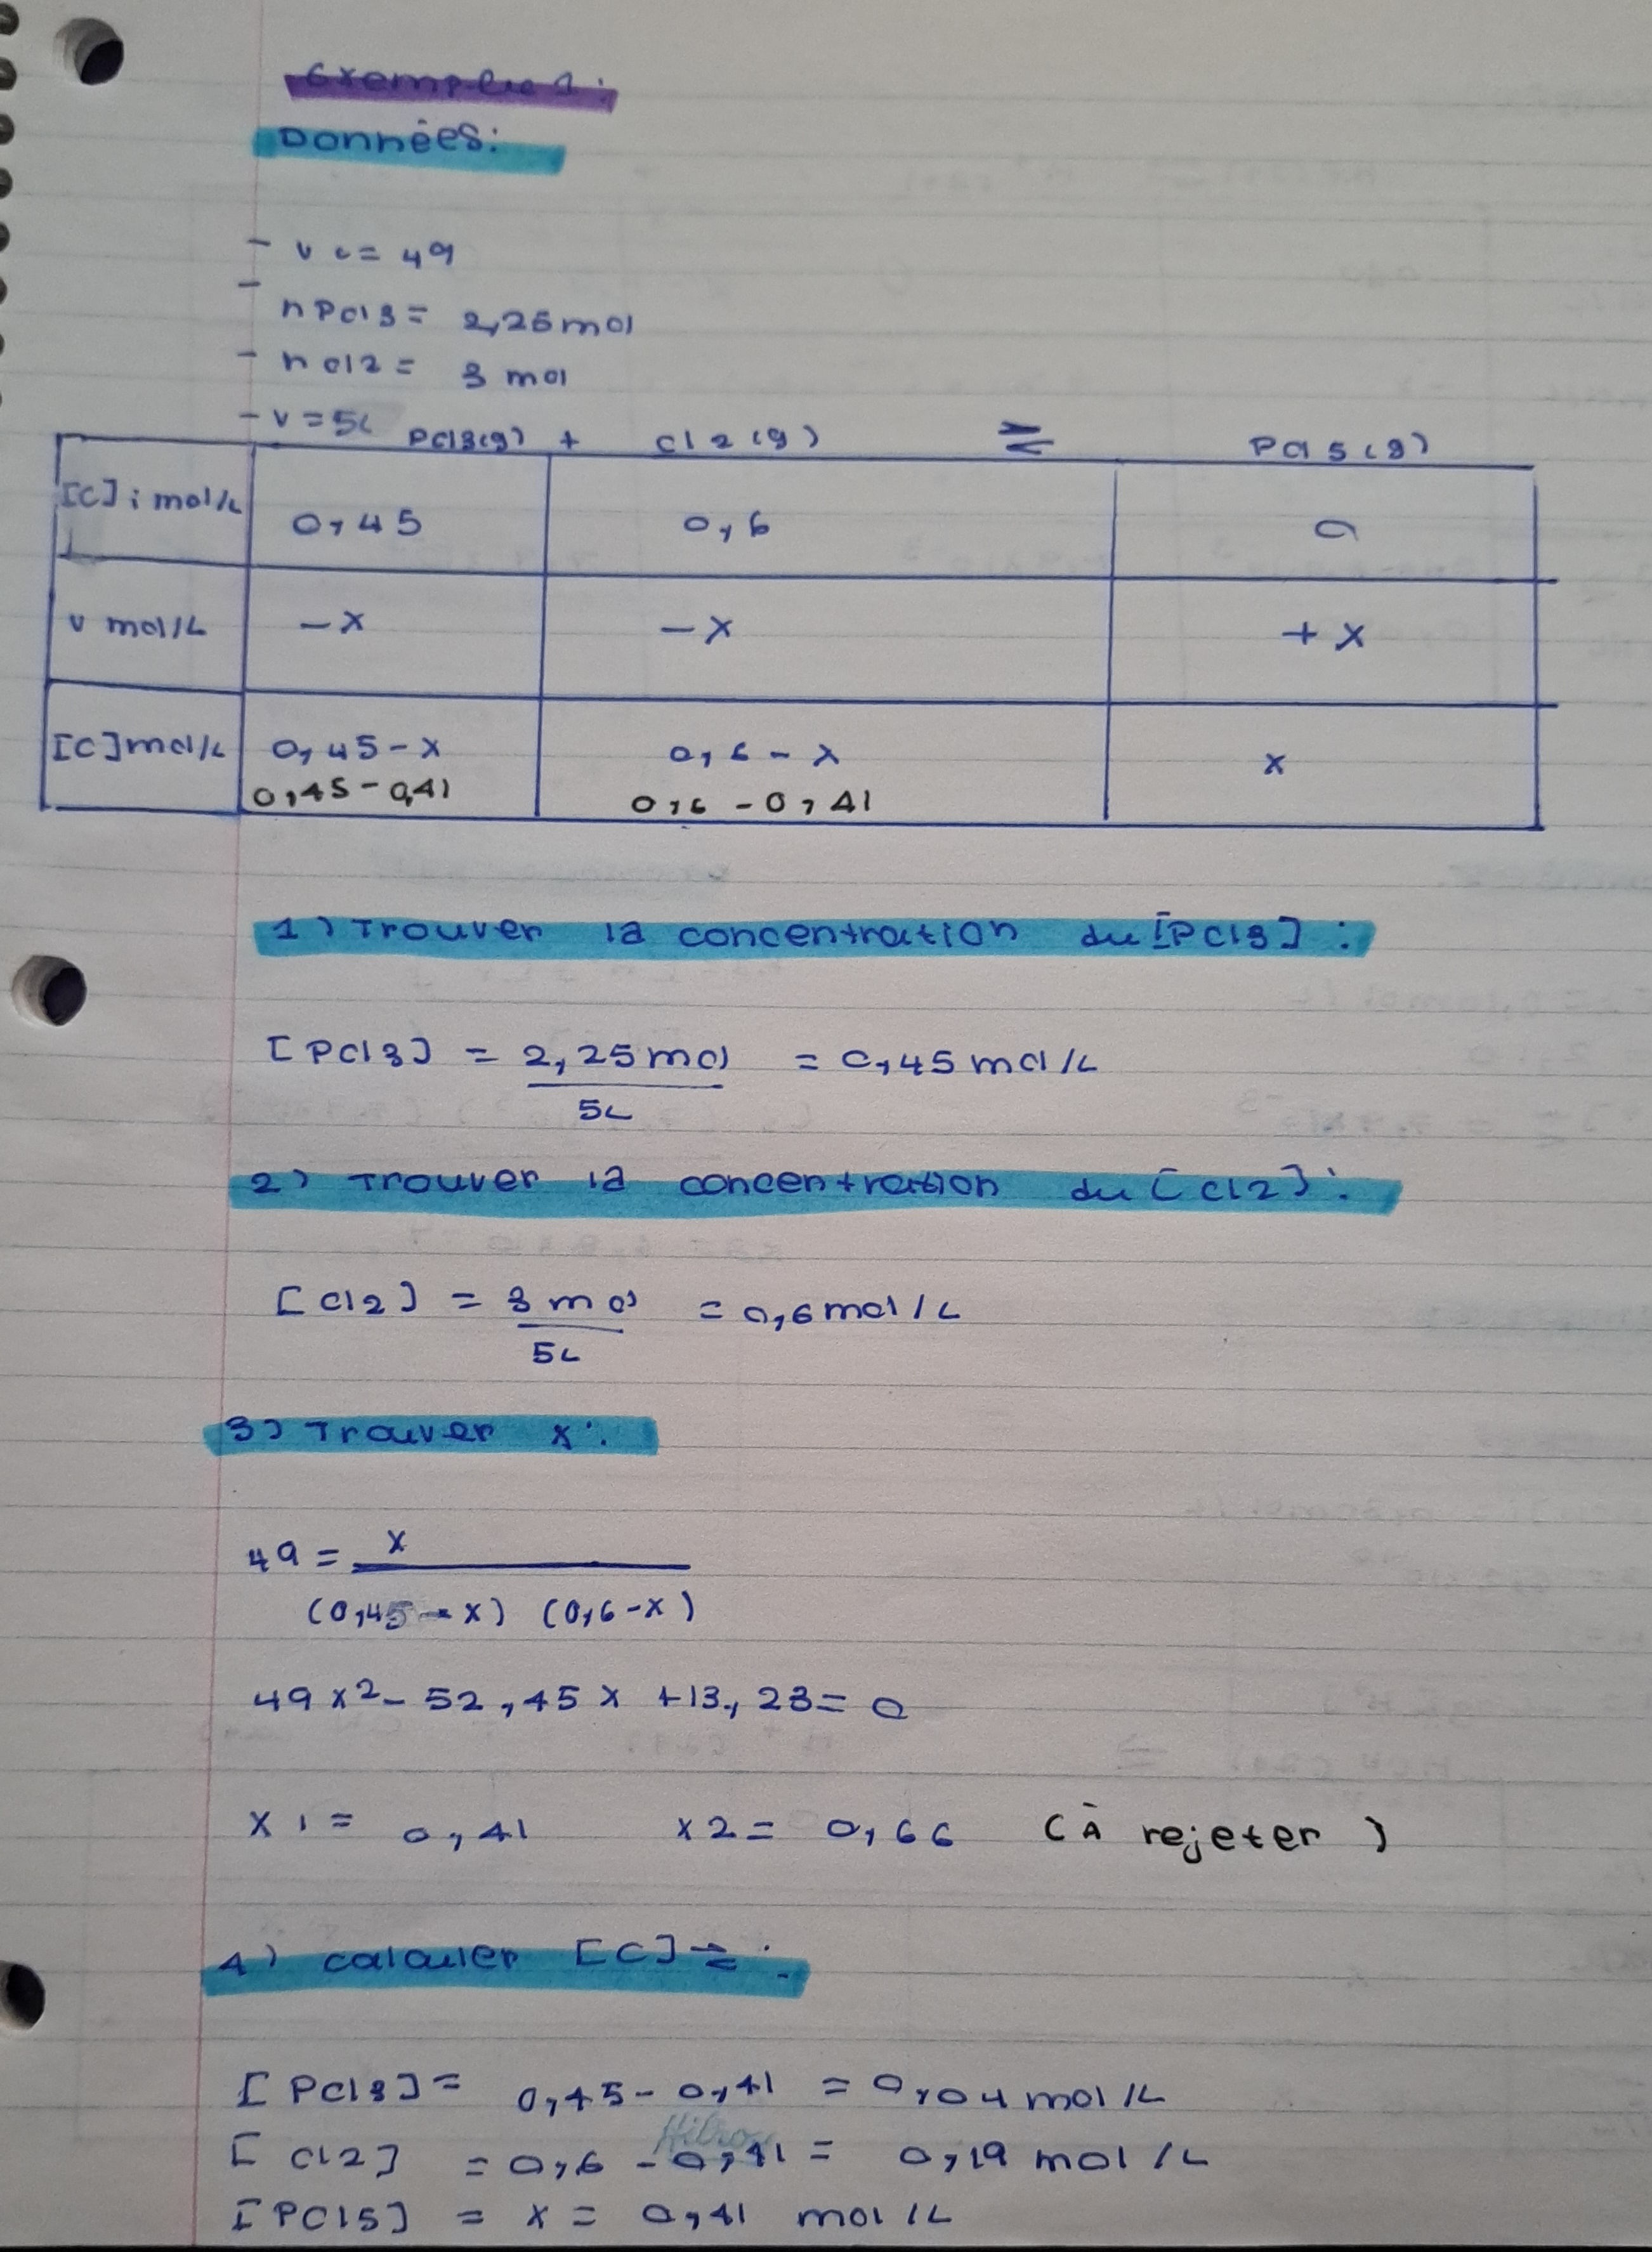 Exemple 1:
Données:
- v c = 49
- n PCl3 = 2,25 mol
- n cl2 = 3 mol
- v = 5L
PCl3(g) + Cl2(g) ⇌ PCl5(g)
[C]i mol/L 0,45 0,6 0
v mol/L -x -x +x
[C] mol/L 0,45-x 0,6-x x
0,45-0,41 0,6-0,41
1) Trouver la concentration du [PCl3] :
[PCl3] = 2,25 mol = 0,45 mol/L
5L
2) Trouver la concentration du [Cl2] :
[Cl2] = 3 mol = 0,6 mol/L
5L
3) Trouver x :
49 = x
(0,45 - x) (0,6-x)
49x2 - 52,45x + 13,23 = 0
x1 = 0,41 x2 = 0,66 (À rejeter)
4) calculer [C]⇌ :
[PCl3] = 0,45 - 0,41 = 0,04 mol/L
Hilroy
[Cl2] = 0,6 - 0,41 = 0,19 mol/L
[PCl5] = x = 0,41 mol/L